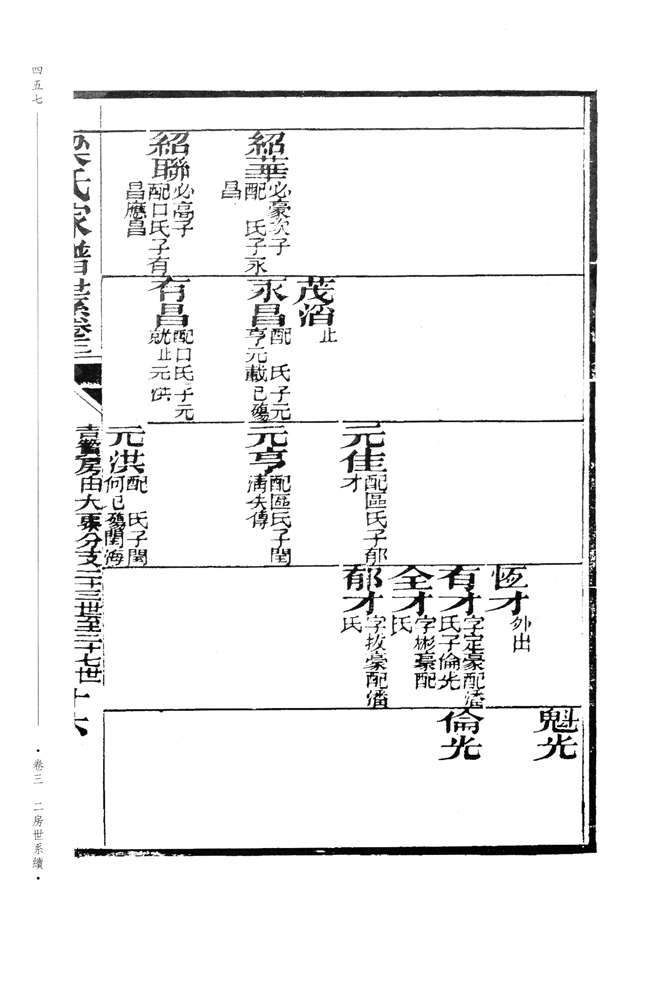 四五七
卷三 二房世系續
紹華
必豪次子
配 氏子永
昌
紹聯
必高子
配口氏子有
昌應昌
茂滔
止
永昌
配 氏子元
亨元載已殤
有昌
配口氏子元
就止元洪
元佳
配區氏子郁
才
元亨
配區氏子閏
清失傳
元洪
配 氏子閏
何已殤閏海
恆才
外出
有才
字定豪配潘
氏子倫光
全才
字彬豪配
氏
郁才
字拔豪配潘
氏
魁光
倫光
氏家譜世系卷三
房由大
分支二十三世至二十七世
十六